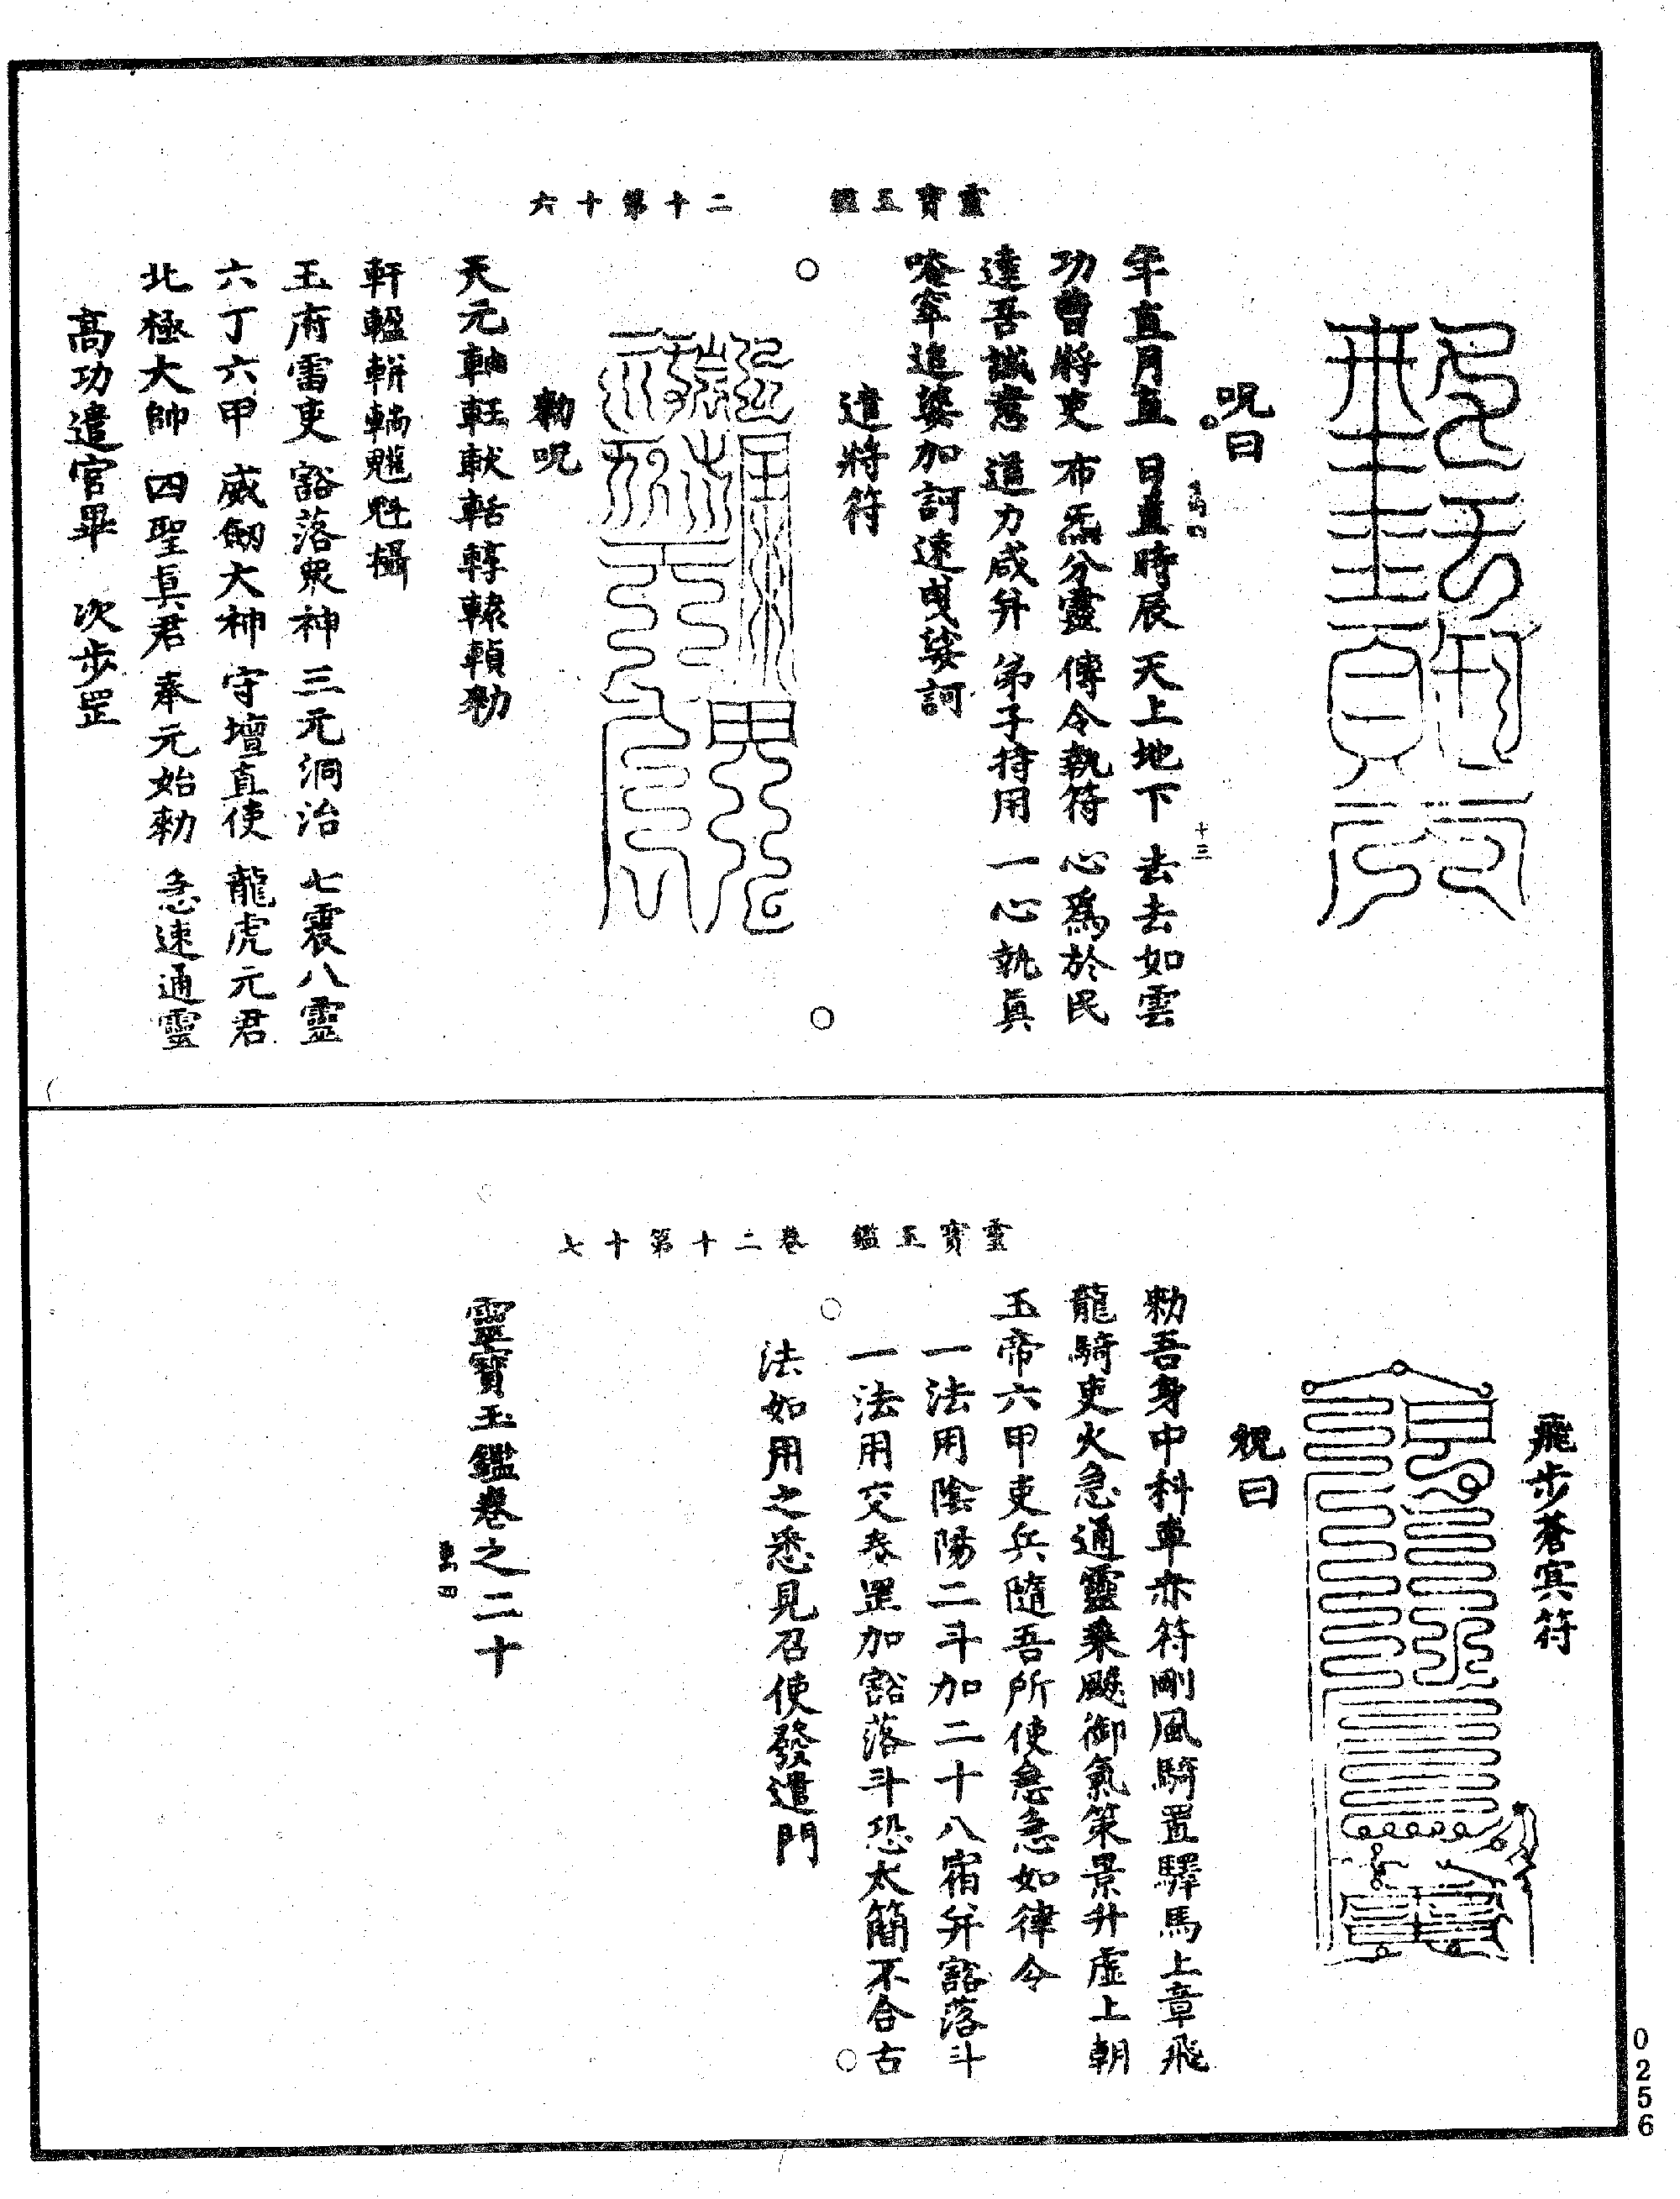 靈寶玉鑑
二十第十六
呪曰
年直月直 日直時辰 天上地下 去去如雲
功曹將吏 布炁分靈 傳令執符 心爲於民
達吾誠意 道力咸并 弟子持用 一心執眞
加訶速
遣將符
勑呪
天元
軒
玉府雷吏 豁落眾神 三元洞治 七震八靈
六丁六甲 威劒大神 守壇直使 龍虎元君
北極大帥 四聖眞君 奉元始勑 急速通靈
高功遣官畢 次步罡
十三
靈寶玉鑑
卷二十第十七
飛步蒼冥符
祝曰
勑吾身中科車赤符剛風騎置驛馬上章飛
龍騎吏火急通靈乘飈御氣策景升虛上朝
玉帝六甲吏兵隨吾所使急急如律令
一法用陰陽二斗加二十八宿并豁落斗
一法用交泰罡加豁落斗恐太簡不合古
法如用之悉見召使發遣門
靈寶玉鑑卷之二十
0256